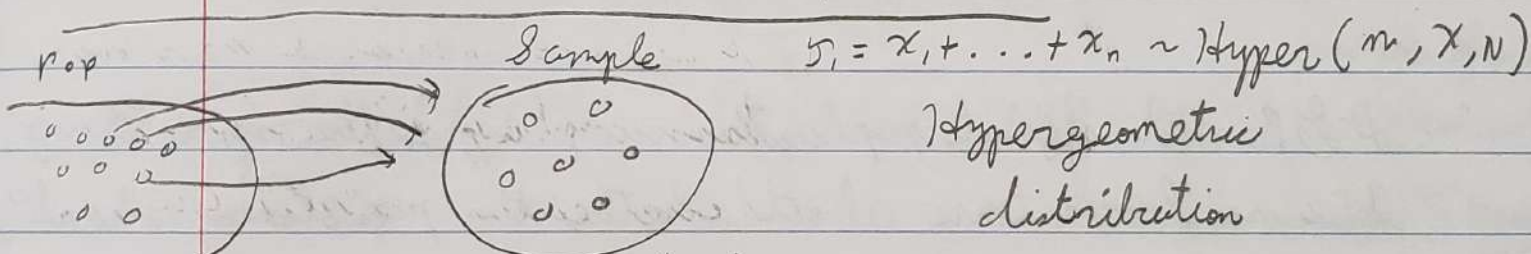 Pop
Sample
S₁ = X₁ + . . . + Xₙ ~ Hyper(n, X, N)
Hypergeometric
distribution